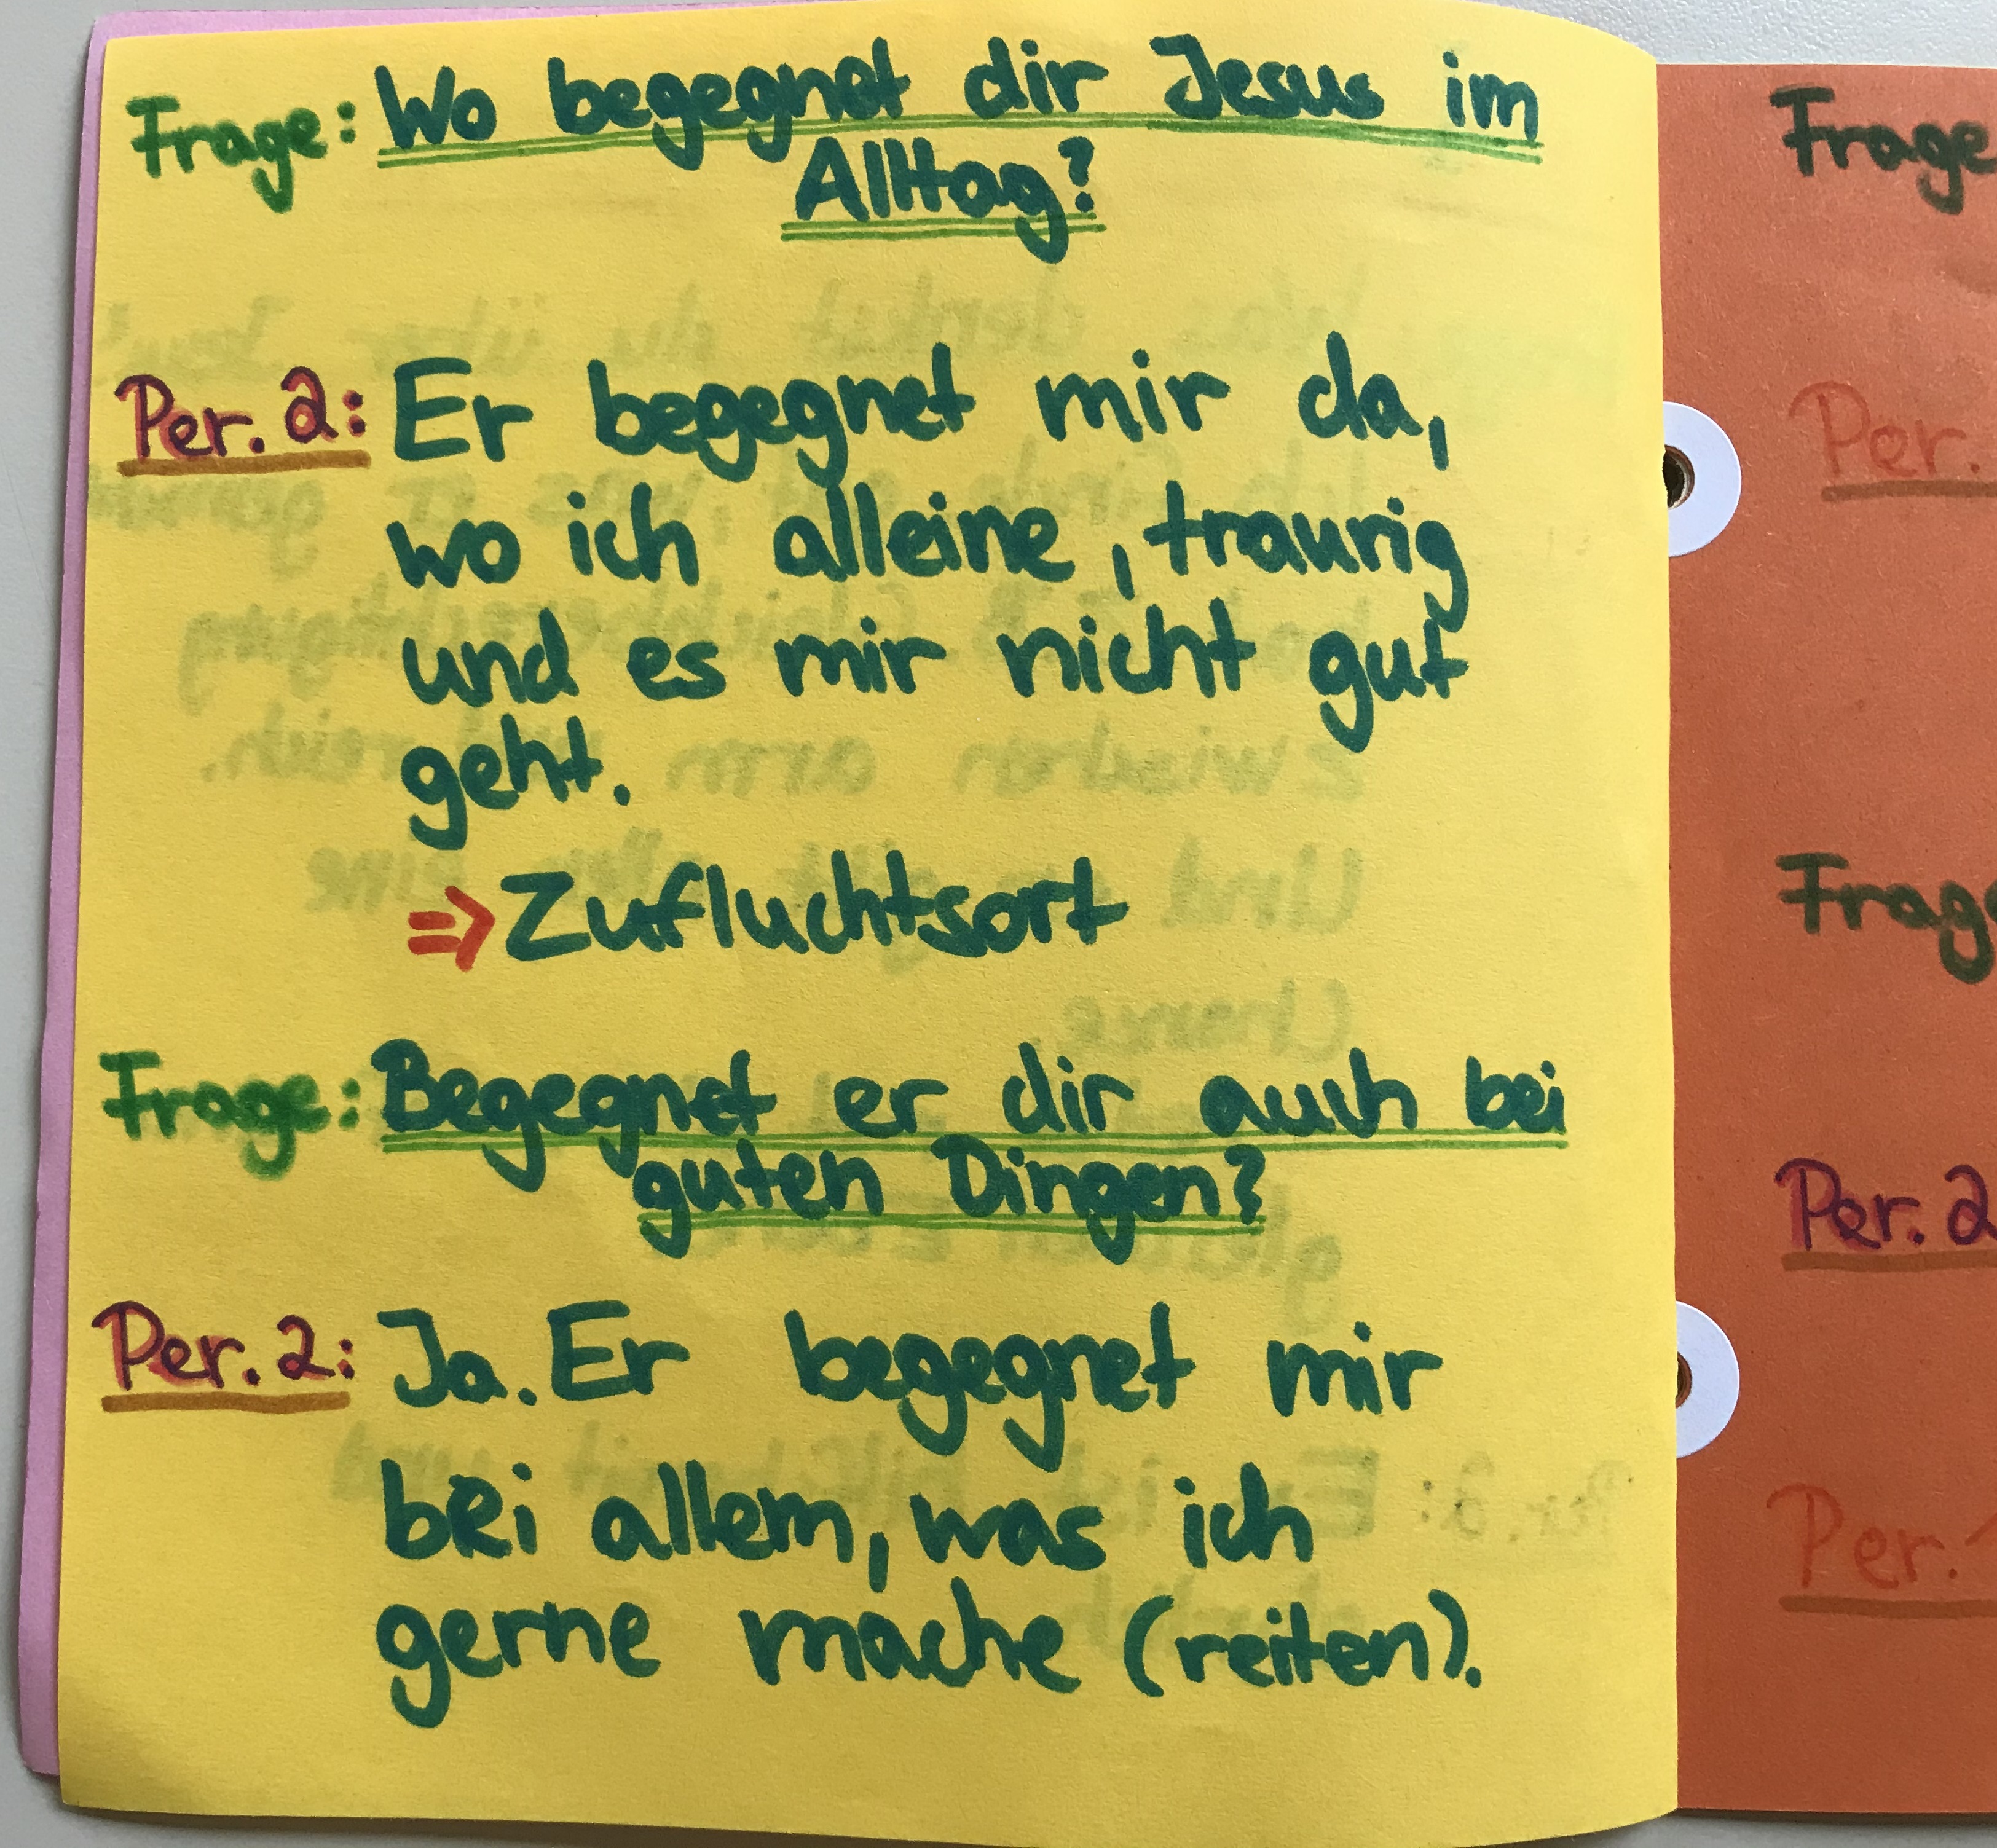 Frage: Wo begegnet dir Jesus im
Alltag?
Per. 2: Er begegnet mir da,
wo ich alleine, traurig
und es mir nicht gut
geht.
=> Zufluchtsort
Frage: Begegnet er dir auch bei
guten Dingen?
Per. 2: Ja. Er begegnet mir
bei allem, was ich
gerne mache (reiten).
Frage
Per.
Frage
Per. 2
Per. 1